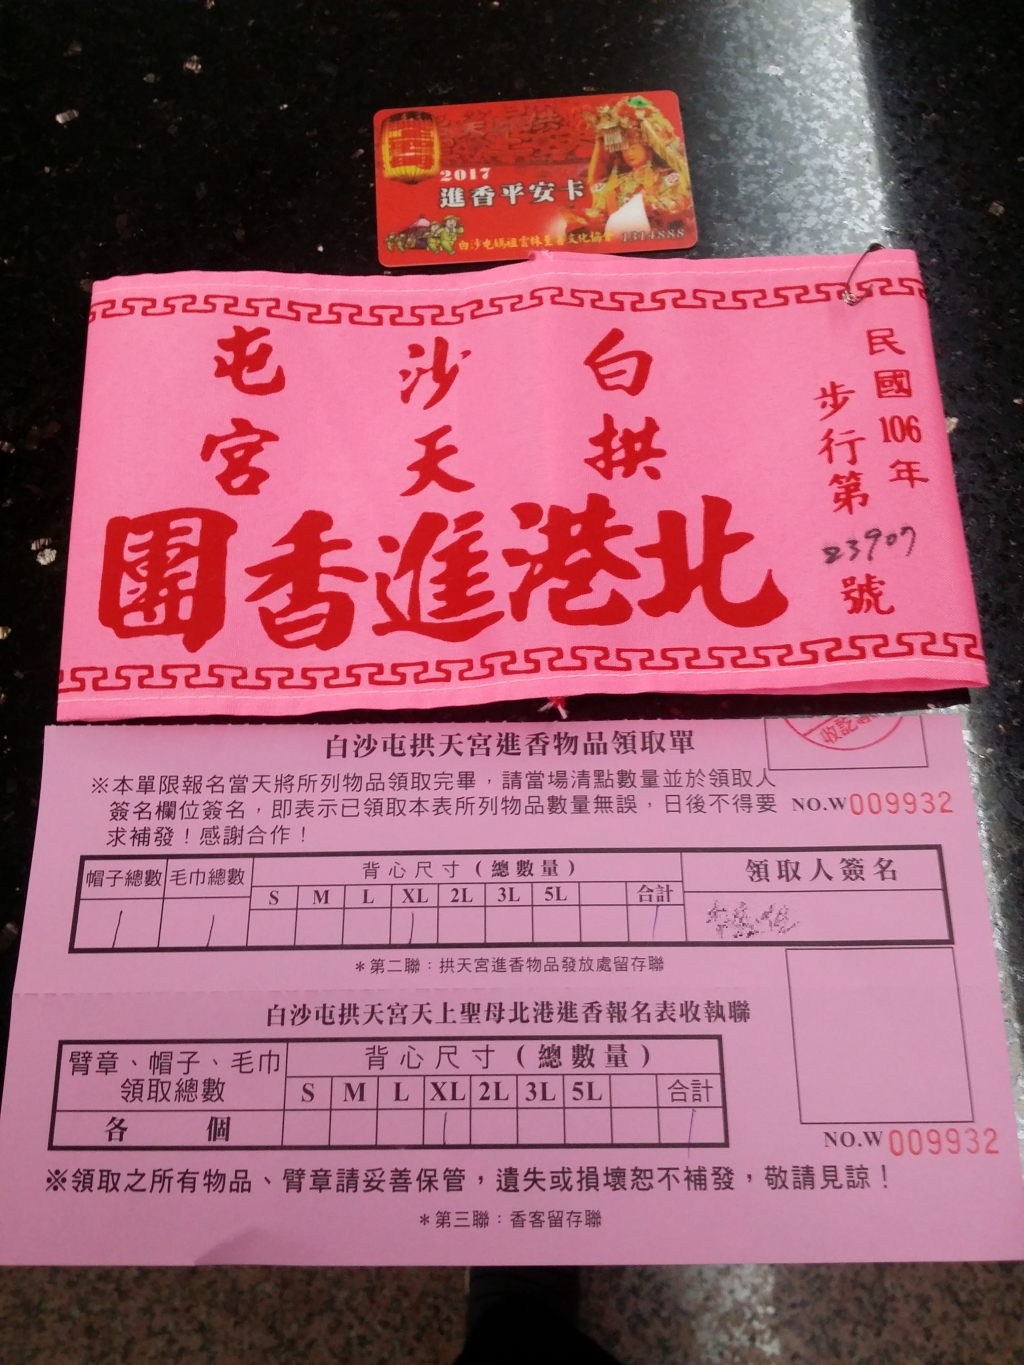 2017
進香平安卡
1314888
民國106年
步行第23907號
白沙屯
拱天宮
北港進香團
收訖
白沙屯拱天宮進香物品領取單
※本單限報名當天將所列物品領取完畢，請當場清點數量並於領取人
簽名欄位簽名，即表示已領取本表所列物品數量無誤，日後不得要
求補發！感謝合作！
NO.W009932
帽子總數 毛巾總數 背心尺寸(總數量) 領取人簽名
S M L XL 2L 3L 5L 合計
1 1 1 1
＊第二聯：拱天宮進香物品發放處留存聯
白沙屯拱天宮天上聖母北港進香報名表收執聯
臂章、帽子、毛巾 背心尺寸(總數量)
領取總數 S M L XL 2L 3L 5L 合計
各 個 1 1
NO.W009932
※領取之所有物品、臂章請妥善保管，遺失或損壞恕不補發，敬請見諒！
＊第三聯：香客留存聯